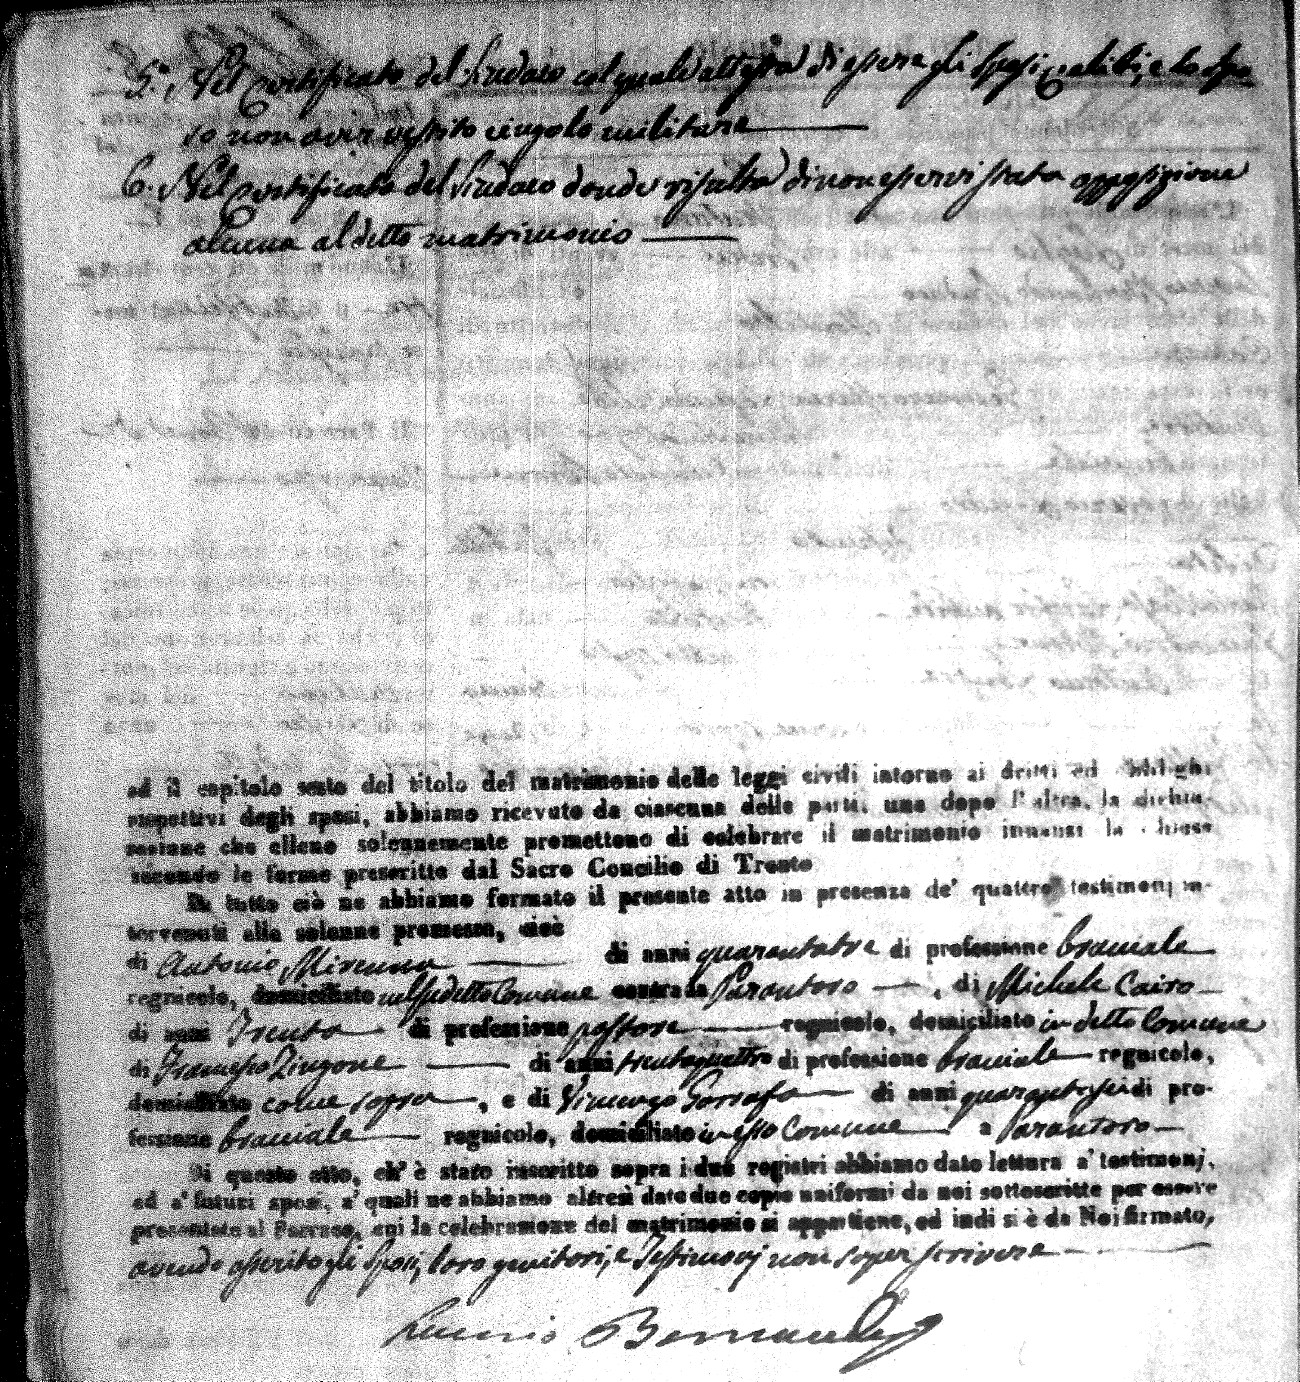 5.° Nel certificato del Sindaco col quale attesta di essere gli Sposi celibi, e lo spo
so non aver vestito cingolo militare
6. Nel certificato del Sindaco donde risulta di non esservi stata opposizione
alcuna al detto matrimonio
ed il capitolo sesto del titolo del matrimonio delle leggi civili intorno ai dritti ed obblighi
rispettivi degli sposi, abbiamo ricevuto da ciascuna delle parti, una dopo l'altra, la dichia-
razione che elleno solennemente promettono di celebrare il matrimonio innanzi la Chiesa
secondo le forme prescritte dal Sacro Concilio di Trento
Di tutto ciò ne abbiamo formato il presente atto in presenza de' quattro testimonj in-
tervenuti alla solenne promessa, cioè
di Antonio Mirenna di anni quarantatre di professione braciale
regnicolo, domiciliato nel sudetto Comune contrada Parantoro, di Michele Cairo
di anni Trenta di professione pastore regnicolo, domiciliato in detto Comune
di Francesco Zingone di anni trentaquattro di professione braciale regnicolo,
domiciliato come sopra, e di Vincenzo Garrafa di anni quarantasei di pro-
fessione braciale regnicolo, domiciliato in esso Comune a Parantoro
Di questo atto, ch'è stato inscritto sopra i due registri abbiamo dato lettura a' testimonj,
ed a' futuri sposi, a' quali ne abbiamo altresì date due copie uniformi da noi sottoscritte per essere
presentate al Parroco, cui la celebrazione del matrimonio si appartiene, ed indi si è da Noi firmato,
avendo asserito gli Sposi, loro genitori, e Testimonj non saper scrivere